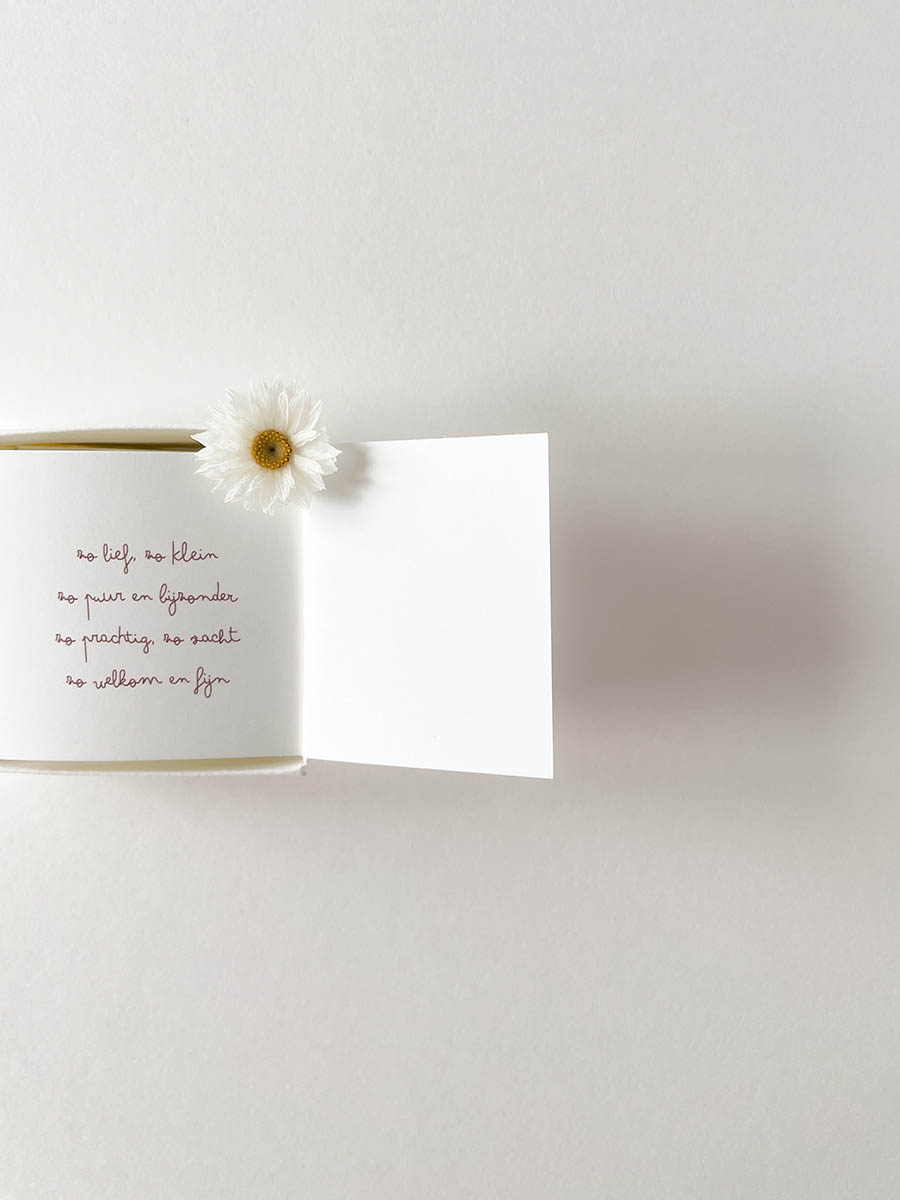 zo lief, zo klein
zo puur en bijzonder
zo prachtig, zo zacht
zo welkom en fijn